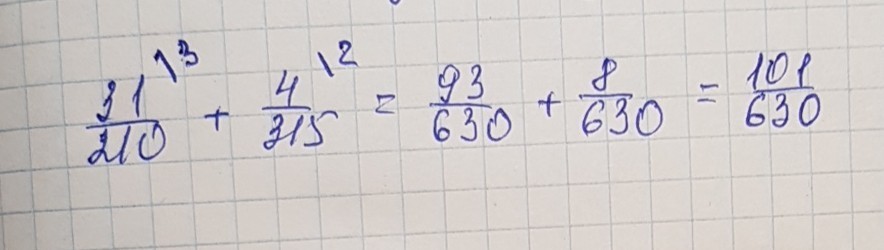 31/210 \3 + 4/315 \2 = 93/630 + 8/630 = 101/630